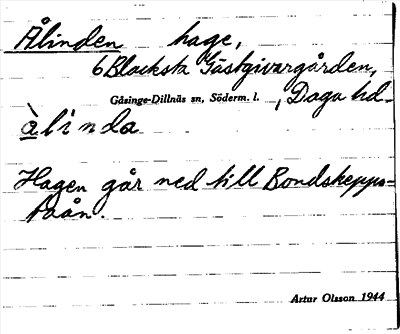 Ålinden hage,
6 Blacksta Gästgivargården,
Gåsinge-Dillnäs sn, Söderm. l. , Daga hd.
àlinda
Hagen går ned till Bondskepps=
taån.
Artur Olsson 1944